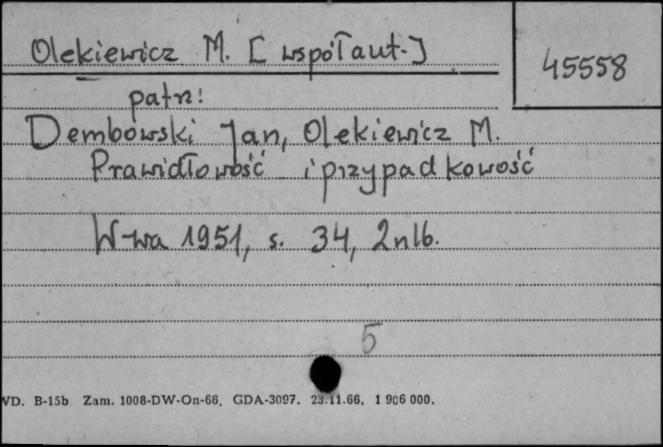 Olekiewicz M. [współaut.]
45558
patrz:
Dembowski Jan, Olekiewicz M.
Prawidłowość i przypadkowość
W-wa 1951, s. 34, 2nlb.
5
WD. B-15b Zam. 1008-DW-On-66, GDA-3097. 23.11.66. 1 906 000.